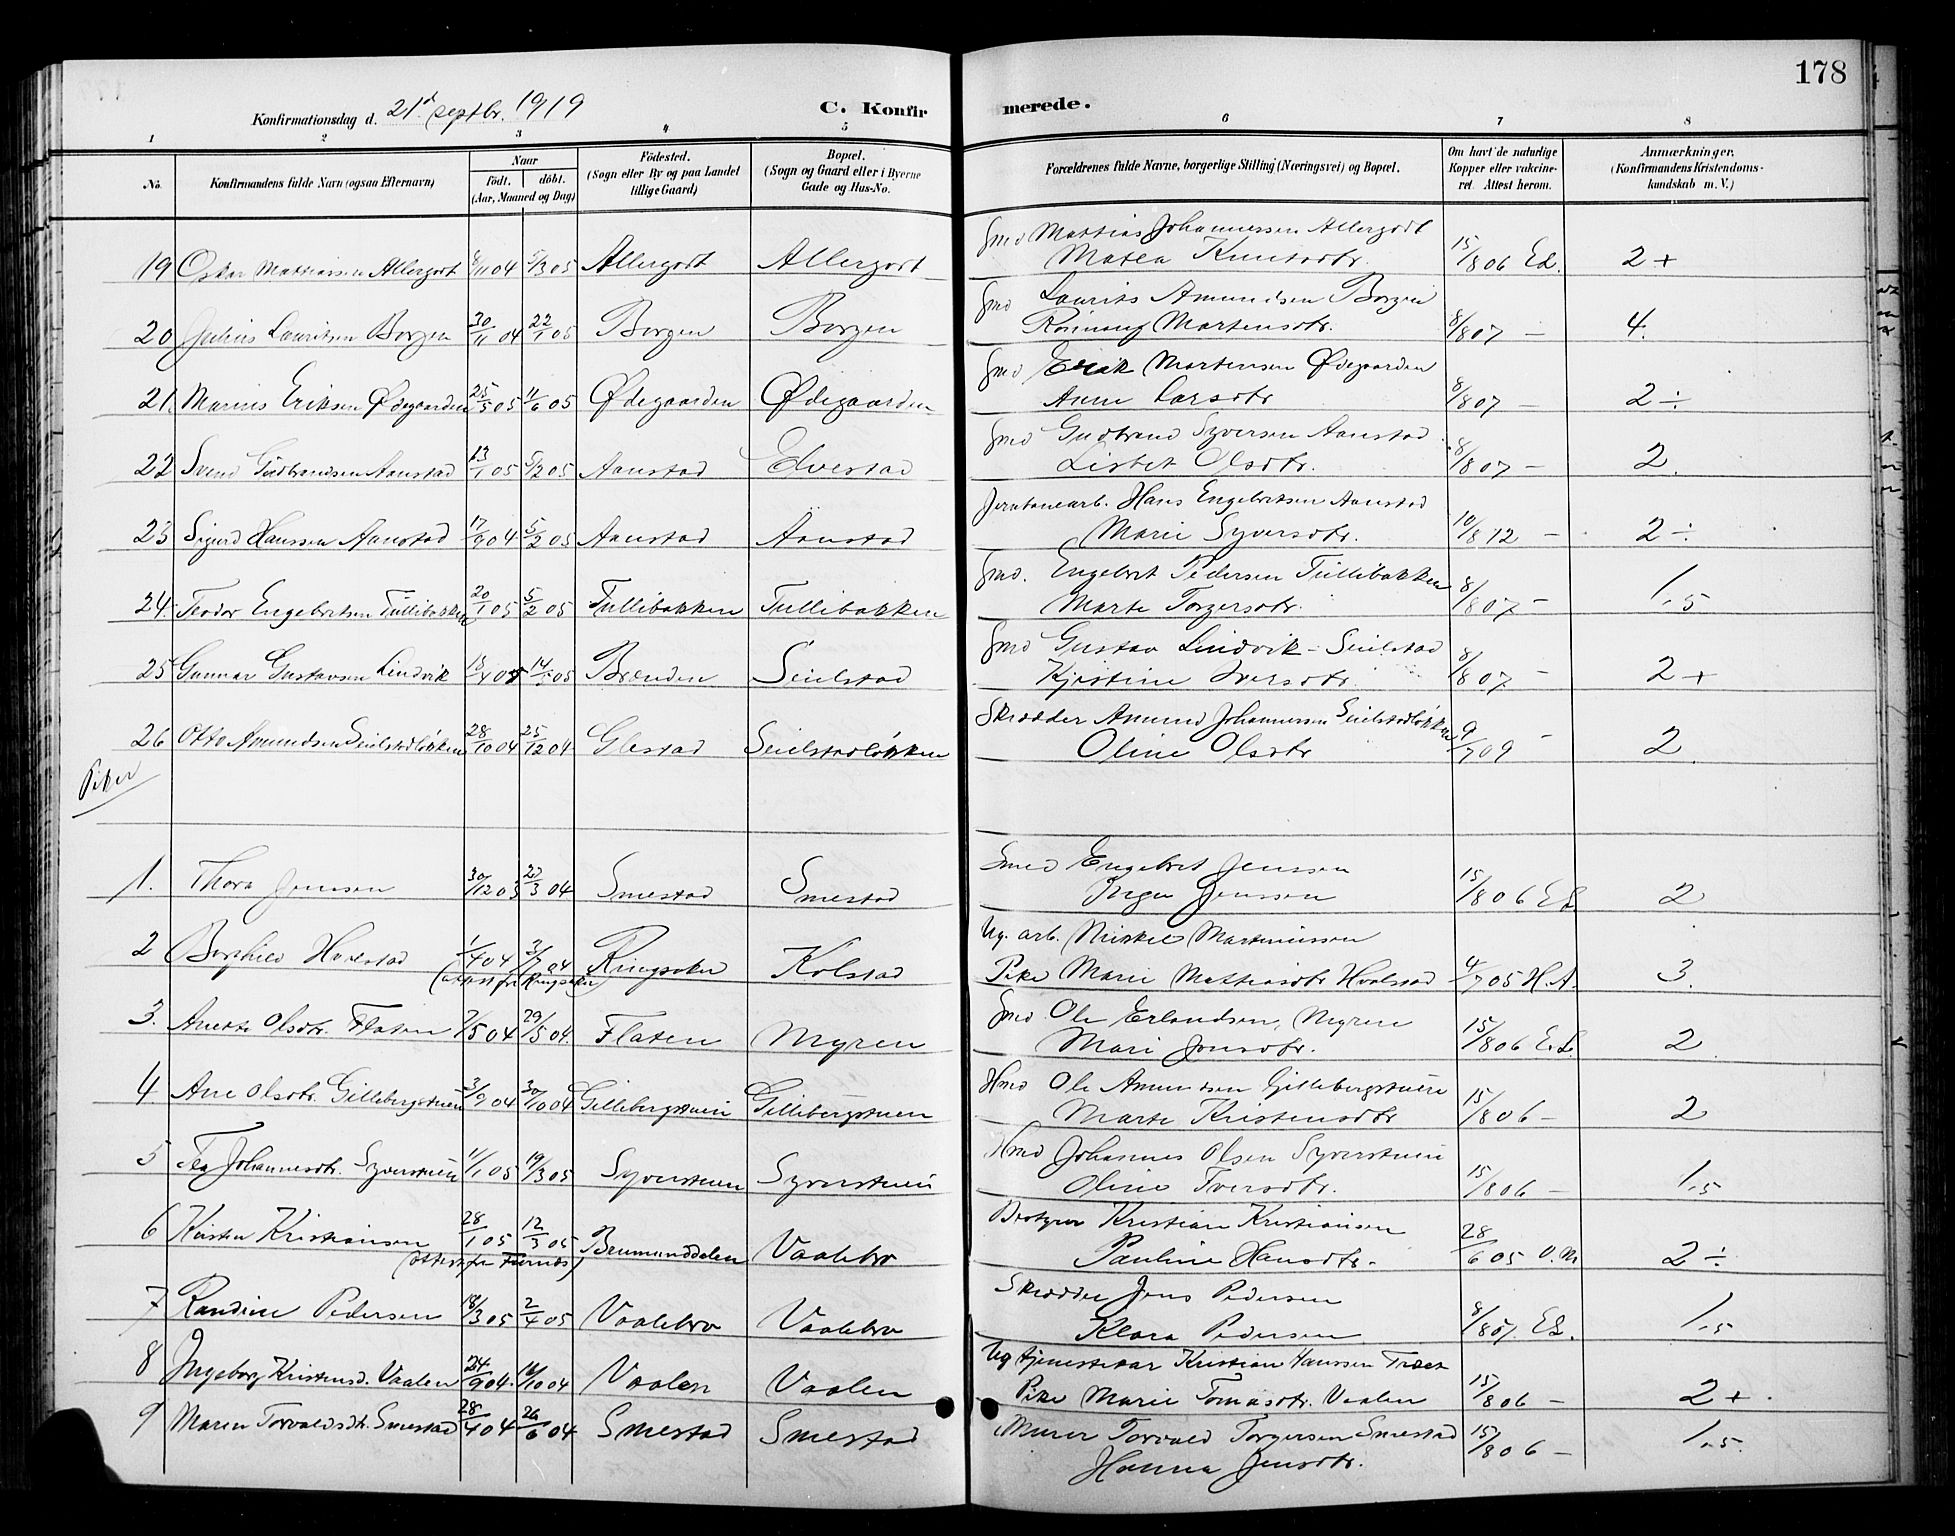 178
Konfirmationsdag d. 21d septbr. 1919
C. Konfirmerede.
1 2 3 4 5 6 7 8
No. Konfirmandens fulde Navn (ogsaa Efternavn) Naar födt. döbt. (Aar, Maaned og Dag) Födested. (Sogn eller By og paa Landet tillige Gaard) Bopæl. (Sogn og Gaard eller i Byerne Gade og Hus-No. Forældrenes fulde Navne, borgerlige Stilling (Næringsvei) og Bopæl. Om havt de naturlige Kopper eller vakcineret. Attest herom. Anmærkninger. (Konfirmandens Kristendomskundskab m. V.)
19 Oskar Mattiassen Allergodt 8/11 04 5/3 05 Allergodt Allergodt Gmd Mattias Johannessen Allergodt
Matea Knutsdtr. 15/8 06 E.L. 2+
20 Julius Lauritsen Borgen 30/11 04 22/1 05 Borgen Borgen Gmd Laurits Amundsen Borgen
Rönnaug Martensdtr. 8/8 07 – 4.
21. Marius Eriksen Ødegaarden 25/3 05 4/6 05 Ødegaarden Ødegaarden Gmd Erik Martensen Ødegaarden
Anne Larsdtr 8/8 07 – 2 ÷
22 Svend Gudbrandsen Aanstad 13/1 05 5/2 05 Aanstad Elvestad Gmd Gudbrand Syversen Aanstad
Lisbet Olsdtr. 8/8 07 – 2.
23 Sigurd Hanssen Aanstad 17/9 04 5/2 05 Aanstad Aanstad Jernbanearb. Hans Engebretsen Aanstad
Marie Syversdtr. 10/8 12 – 2 ÷
24. Teodor Engebretsen Tullibakken 20/1 05 5/2 05 Tullibakken Tullibakken Gmd. Engebret Pedersen Tullibakken
Marte Torgersdtr. 8/8 07 – 1,5
25 Gunnar Gustavsen Lindvik 05 14/ 05 Brenden Seielstad Gmd Gustav Lindvik – Seielstad
Kjerstine Iversdtr. 8/8 07 – 2+
26 Otto Amundsen Seielstadløkken 28/10 04 25/12 04 Glestad Seielstadløkken Skrædder Amund Johannessen Seielstadløkken
Oline Olsdtr 9/7 09 – 2.
Piker
1. Thora Jenssen 30/12 03 27/3 04 Smestad Smestad Smed Engebret Jenssen
Inga Jenssen 15/8 06 E.L. 2
2 Borghild Hvalstad 1/4 04 3/7 04 Ringsaker Kolstad Ug. arb. Mikkel Martinissen
(attest fra Ringsaker) Pike Marie Mattiasdtr Hvalstad 4/7 05 H.A. 3.
3. Anette Olsdtr. Flaten 7/5 04 29/5 04 Flaten Myren Gmd Ole Erlandsen, Myren
Mari Jonsdtr. 15/8 06 E.L. 2.
4 Ane Olsdtr. Gillebergstuen 3/9 04 30/10 04 Gillebergstuen Gillebergstuen Hmd Ole Amundsen Gillebergstuen
Marte Kristensdtr 15/8 06 – 2
5 Tea Johannesdtr. Syverstuen 11/1 05 19/3 05 Syverstuen Syverstuen Hmd Johannes Olsen Syverstuen
Oline Iversdtr. 15/8 06 – 1,5
6 Kirsten Kristiansen 28/1 05 12/3 05 Brumunddalen Vaalebro Bestyrer Kristian Kristiansen
(attest fra Furnes) Pauline Hansdtr. 28/6 05 O.M 2 ÷
7 Randine Pedersen 18/3 05 2/4 05 Vaalebro Vaalebro Skrædder Jens Pedersen
Klara Pedersen 8/8 07. E.L. 1,5
8 Ingeborg Kristensd. Vaalen 24/9 04. 16/10 04 Vaalen Vaalen Ug tjenestekar Kristian Hanssen Træet
Pike Marie Tomasdtr. Vaalen 15/8 06 – 2 +
9 Maren Torvaldsdtr. Smestad 28/4 04 26/6 04 Smestad Smestad Murer Torvald Torgersen Smestad
Hanna Jensdtr. 15/8 06 – 1,5.